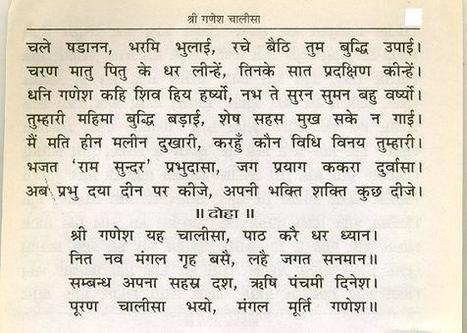 श्री गणेश चालीसा
चले षडानन, भरमि भुलाई, रचे बैठि तुम बुद्धि उपाई।
चरण मातु पितु के धर लीन्हें, तिनके सात प्रदक्षिण कीन्हें।
धनि गणेश कहि शिव हिय हर्ष्यो, नभ ते सुरन सुमन बहु वर्ष्यो।
तुम्हारी महिमा बुद्धि बड़ाई, शेष सहस मुख सके न गाई।
मैं मति हीन मलीन दुखारी, करहुँ कौन विधि विनय तुम्हारी।
भजत ‘राम सुन्दर’ प्रभुदासा, जग प्रयाग ककरा दुर्वासा।
अब प्रभु दया दीन पर कीजे, अपनी भक्ति शक्ति कुछ दीजे।
॥ दोहा ॥
श्री गणेश यह चालीसा, पाठ करै धर ध्यान।
नित नव मंगल गृह बसै, लहै जगत सनमान॥
सम्बन्ध अपना सहस्र दश, ऋषि पंचमी दिनेश।
पूरण चालीसा भयो, मंगल मूर्ति गणेश॥